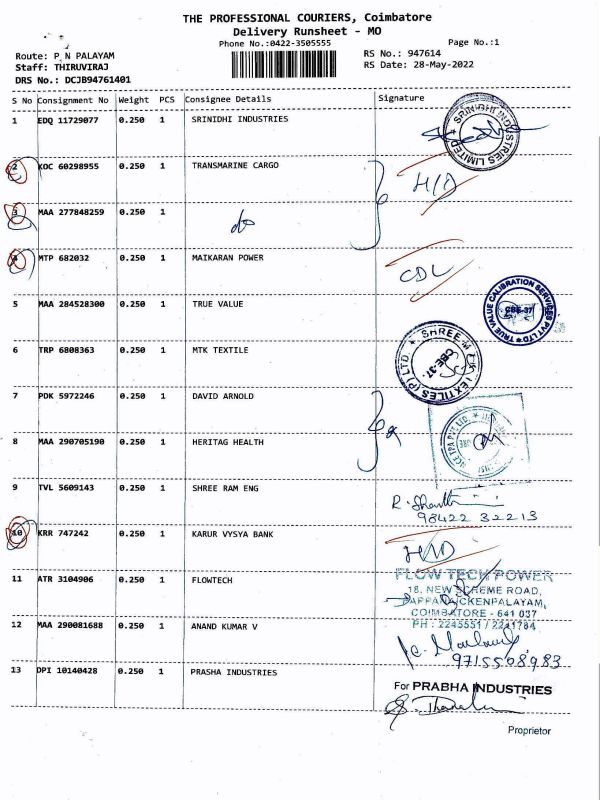 THE PROFESSIONAL COURIERS, Coimbatore
Delivery Runsheet - MO
Phone No.:0422-3505555
Page No.:1
Route: P N PALAYAM
Staff: THIRUVIRAJ
DRS No.: DCJB94761401
RS No.: 947614
RS Date: 28-May-2022
S No Consignment No Weight PCS Consignee Details Signature
1 EDQ 11729077 0.250 1 SRINIDHI INDUSTRIES
SRINIDHI INDUSTRIES LIMITED
2 KOC 60298955 0.250 1 TRANSMARINE CARGO
3 MAA 277848259 0.250 1 do
4 MTP 682032 0.250 1 MAIKARAN POWER CDL
5 MAA 284528300 0.250 1 TRUE VALUE
TRUE VALUE CALIBRATION SERVICES PVT LTD
CBE-37
6 TRP 6808363 0.250 1 MTK TEXTILE
SHREE M TEXTILES (P) LTD.
CBE-37.
7 PDK 5972246 0.250 1 DAVID ARNOLD
8 MAA 290705190 0.250 1 HERITAG HEALTH
9 TVL 5609143 0.250 1 SHREE RAM ENG
98422 32213
10 KRR 747242 0.250 1 KARUR VYSYA BANK
11 ATR 3104906 0.250 1 FLOWTECH
FLOW TECH POWER
18, NEW SCHEME ROAD,
PAPPANAICKENPALAYAM,
COIMBATORE - 641 037
PH : 2245551 / 2241784
12 MAA 290081688 0.250 1 ANAND KUMAR V
9715508983
13 DPI 10140428 0.250 1 PRASHA INDUSTRIES
For PRABHA INDUSTRIES
Proprietor